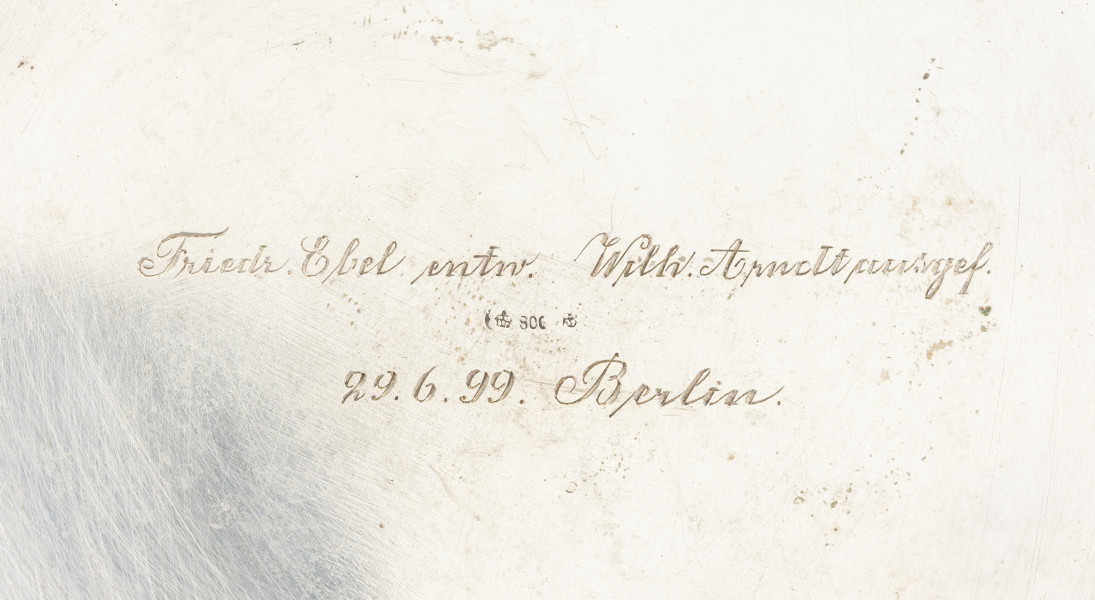 Friedr. Ebel entw. Wilh. Arndt ausgef.
800
29.6.99. Berlin.